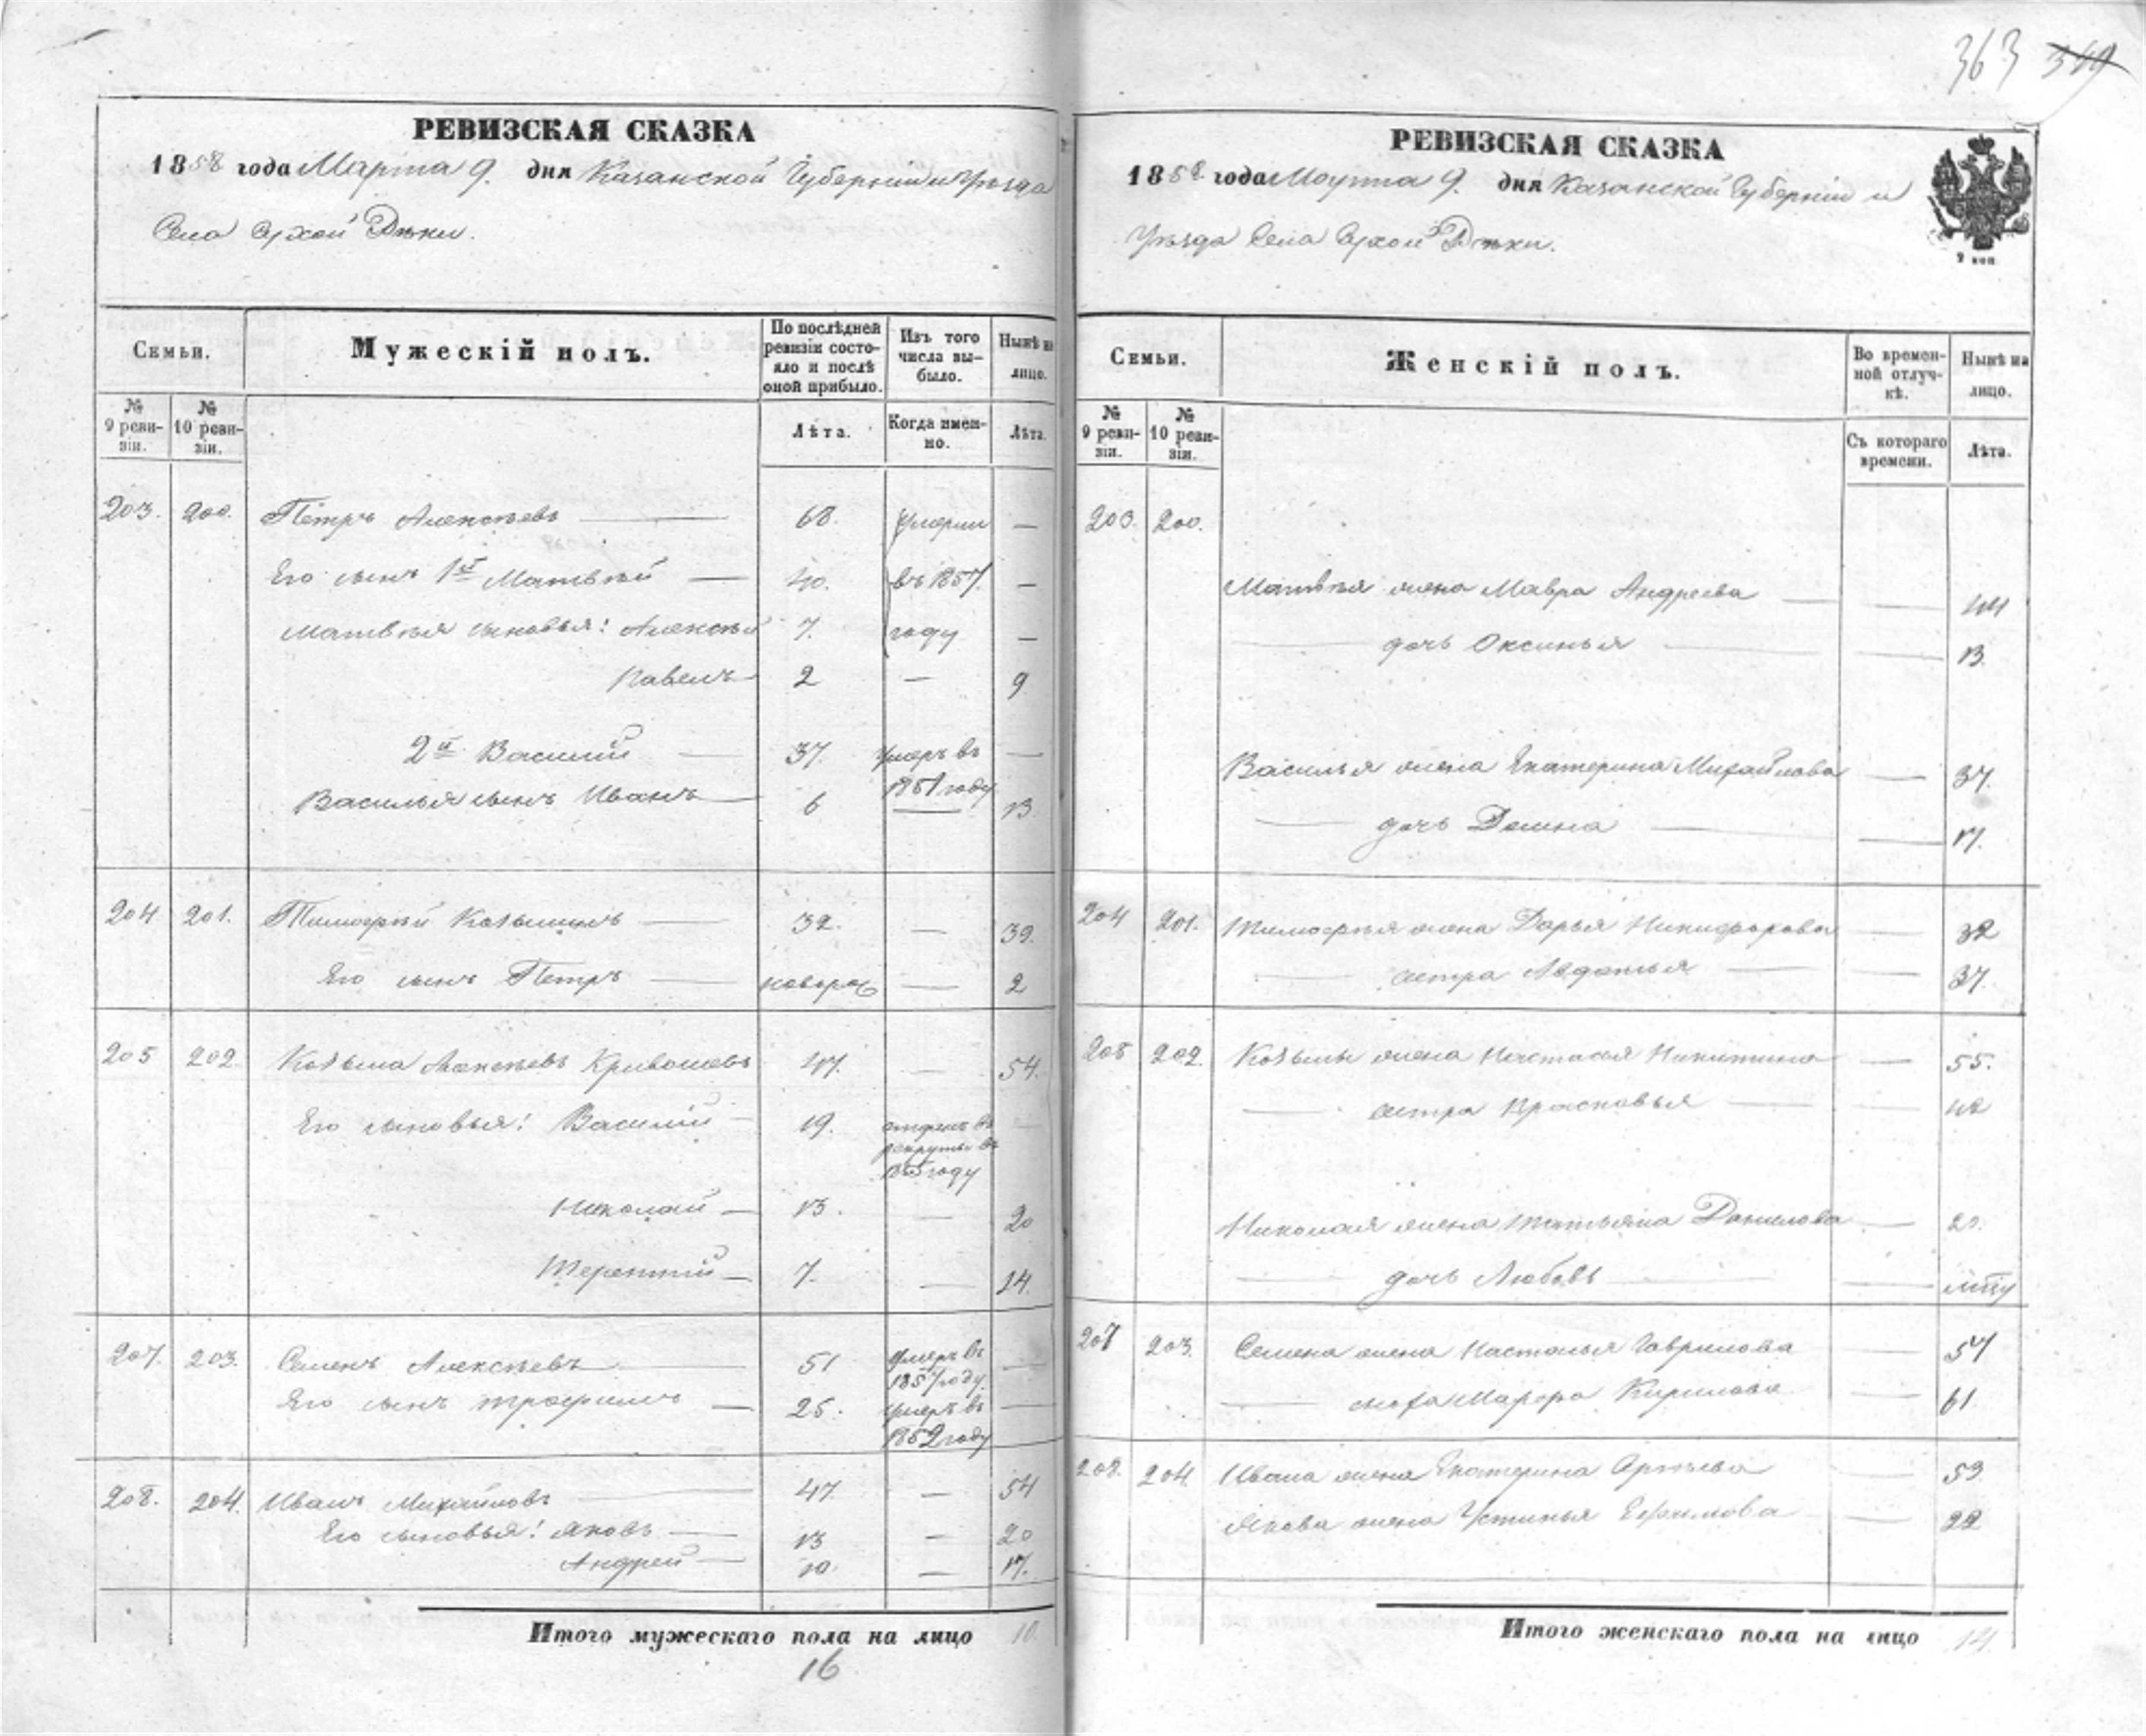 363 349
РЕВИЗСКАЯ СКАЗКА
1858 года Марта 9. дня Казанской Губерніи и Уѣзда
Села Сухой Рѣки.
Семьи.
Мужескій полъ.
По послѣдней ревизіи состояло и послѣ оной прибыло.
Изъ того числа выбыло.
Нынѣ на лицо.
№ 9 ревизіи.
№ 10 ревизіи.
Лѣта.
Когда именно.
Лѣта.
203. 200. Петръ Алексѣевъ 68. умерли —
Его сынъ 1й Матвѣй 40. въ 1857. —
Матвѣя сыновья: Алексѣй 7. году —
Павелъ 2 — 9
2й Василій 37. умеръ въ 1851 году —
Василья сынъ Иванъ 6 — 13
204 201. Тимофѣй Козьминъ 32. — 39.
Его сынъ Петръ новорож — 2
205 202. Козьма Алексѣевъ Кривошевъ 47. — 54.
Его сыновья: Василій 19. отданъ въ рекруты въ 1855 году —
Николай 13. — 20
Терентій 7. — 14.
207. 203. Семенъ Алексѣевъ 51 умеръ въ 1857 году —
Его сынъ Трофимъ 25. умеръ въ 1852 году —
208. 204. Иванъ Михайловъ 47. — 54
Его сыновья: Яковъ 13 — 20
Андрей 10. — 17.
Итого мужескаго пола на лицо 10.
16
РЕВИЗСКАЯ СКАЗКА
1858 года Марта 9. дня Казанской Губерніи и
Уѣзда Села Сухой Рѣки.
2 коп
Семьи.
Женскій полъ.
Во временной отлучкѣ.
Нынѣ на лицо.
№ 9 ревизіи.
№ 10 ревизіи.
Съ котораго времени.
Лѣта.
203. 200.
Матвѣя жена Мавра Андреева — 44
— дочь Оксинья — 13.
Василья жена Екатерина Михайлова — 37.
— дочь Домна — 17.
204 201. Тимофѣя жена Дарья Никифорова — 32
— сестра Авдотья — 37.
205 202. Козьмы жена Настасья Никитина — 55.
— сестра Прасковья — 42
Николая жена Татьяна Данилова — 21.
— дочь Любовь —
207 203. Семена жена Настасья Гаврилова — 57
— Кирилова — 61.
208. 204. Ивана жена Екатерина — 53
Якова жена Устинья Ефимова — 22
Итого женскаго пола на лицо 14